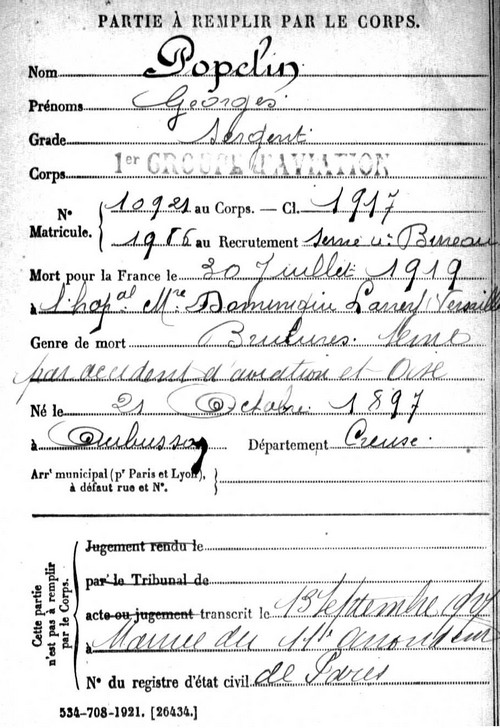 PARTIE À REMPLIR PAR LE CORPS.
Nom Popelin
Prénoms Georges
Grade Sergent
Corps 1er GROUPE D'AVIATION
N° Matricule. 10921 au Corps. — Cl. 1917
1986 au Recrutement Seine 4e Bureau
Mort pour la France le 20 Juillet 1919
à l'hopal Mre Dominique Larrey Versailles
Genre de mort Brulures. Seine
par accident d'aviation et Oise
Né le 21 Octobre 1897
à Aubusson Département Creuse.
Arrt municipal (pr Paris et Lyon),
à défaut rue et N°.
Cette partie n'est pas à remplir par le Corps.
Jugement rendu le
par le Tribunal de
acte ou jugement transcrit le 13 Septembre
à Mairie du 11e arrondissement
N° du registre d'état civil de Paris
534-708-1921. [26434.]